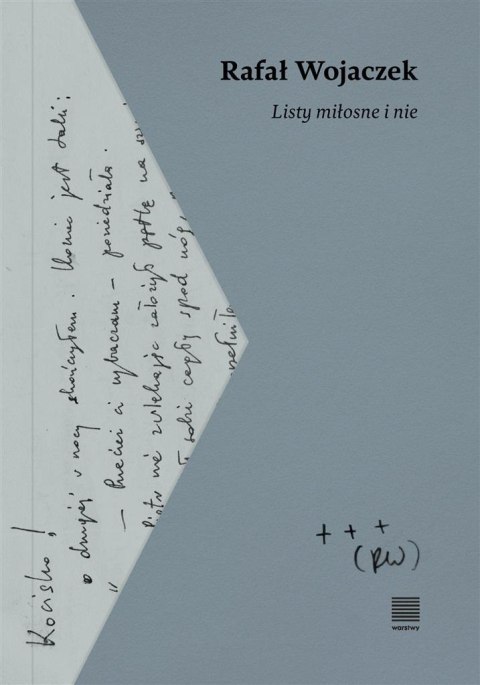 Rafał Wojaczek
Listy miłosne i nie
Kocisko!
o drugiej w nocy skończyłem. Koniec jest taki:
„— Przecież ci wybaczam — powiedziała.
Piotr nie zwlekając założył pętlę na
sobie cegły spod nóg,
+ + +
(RW)
warstwy